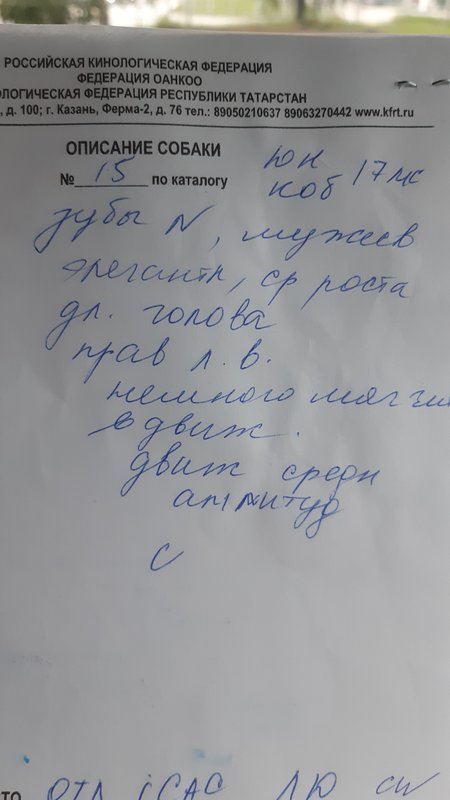 РОССИЙСКАЯ КИНОЛОГИЧЕСКАЯ ФЕДЕРАЦИЯ
ФЕДЕРАЦИЯ ОАНКОО
ОЛОГИЧЕСКАЯ ФЕДЕРАЦИЯ РЕСПУБЛИКИ ТАТАРСТАН
, д. 100; г. Казань, Ферма-2, д. 76 тел.: 89050210637 89063270442 www.kfrt.ru
ОПИСАНИЕ СОБАКИ
№ 15 по каталогу
юн
коб 17 мс
зубы N, мужев
элегантн, ср роста
дл. голова
прав л. в.
немного мягчи
в движ.
движ средн
амплитуд
С
ОТЛ CAC ЛЮ CW